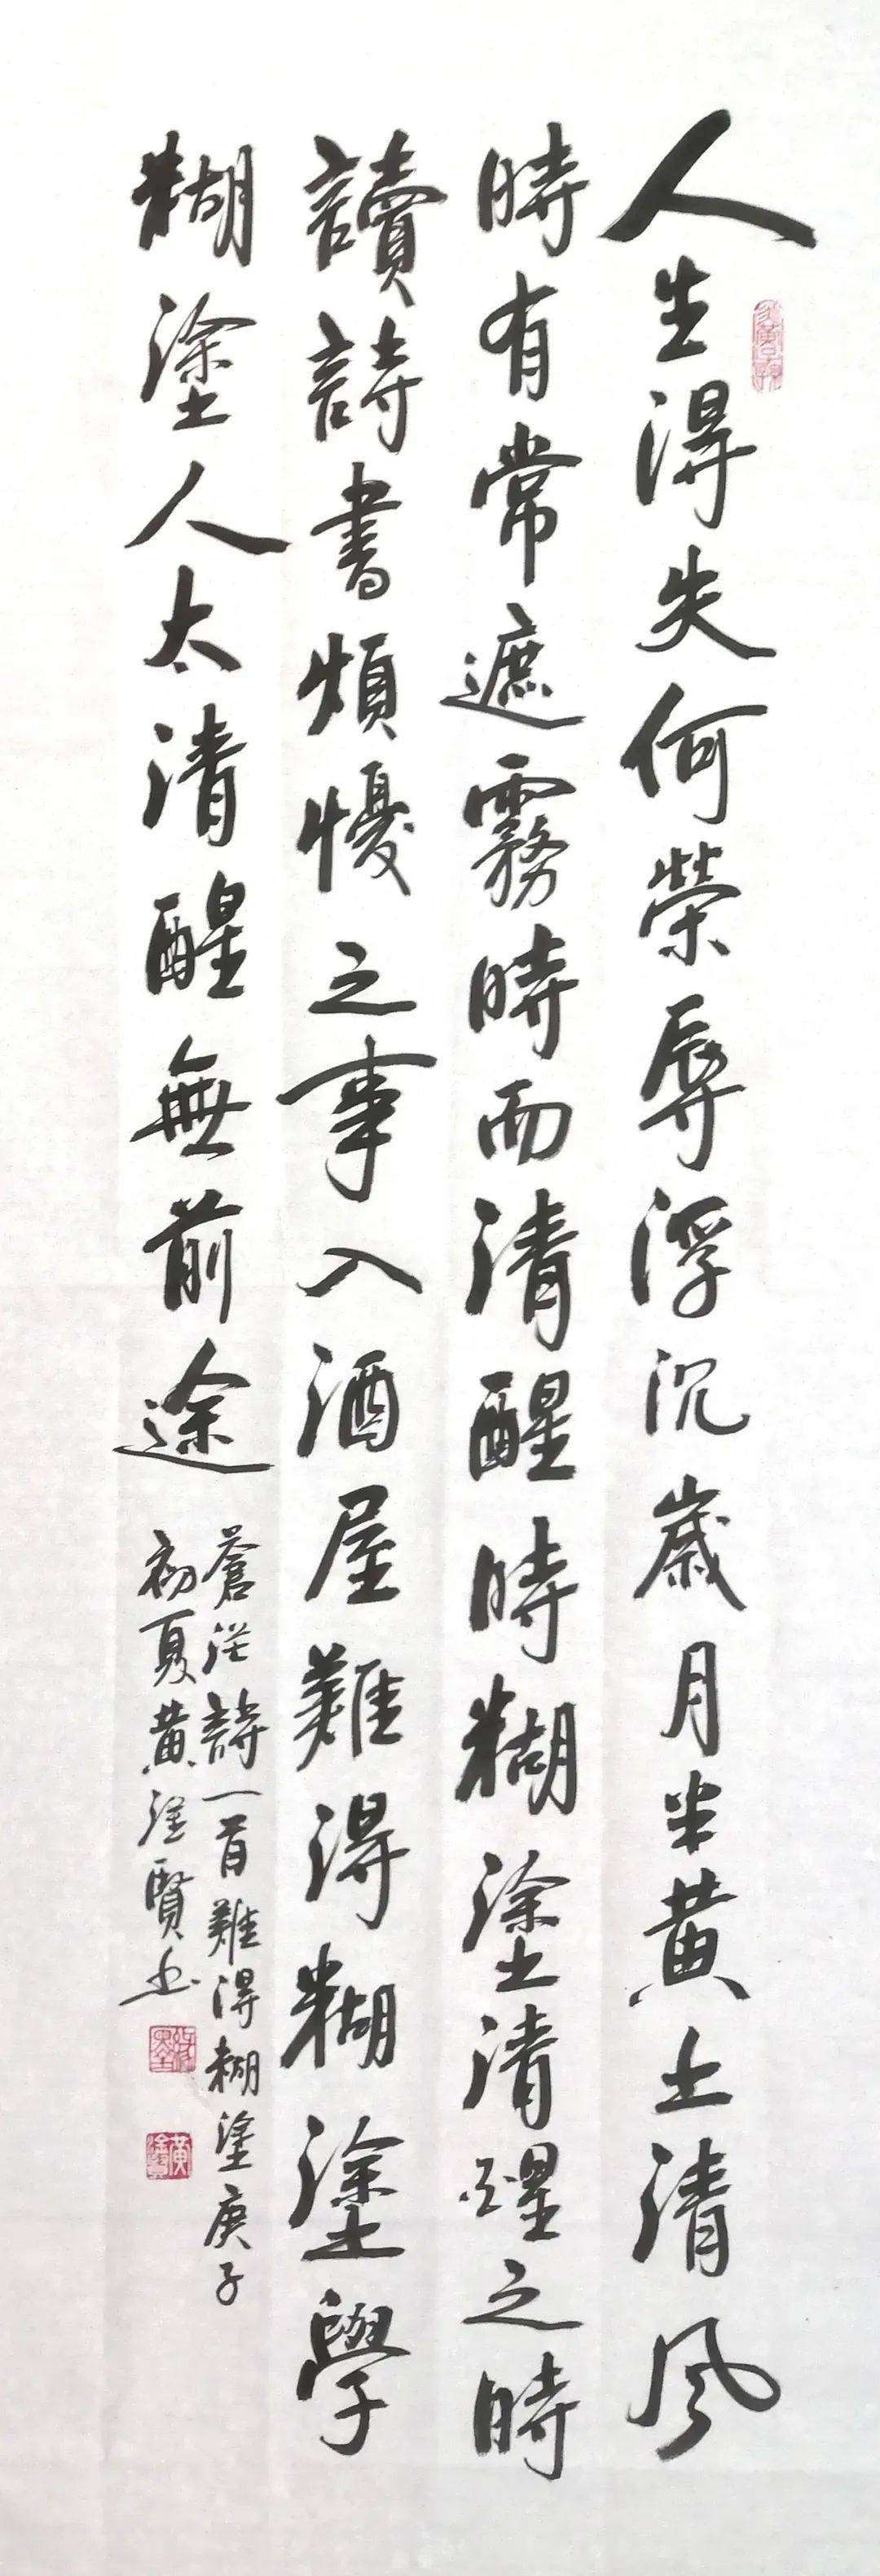 人生得失何榮辱浮沉歲月半黃土清風
時有常遮霧時而清醒時糊塗清醒之時
讀詩書煩憂之事入酒屋難得糊塗學
糊塗人太清醒無前途
蒼茫詩一首難得糊塗庚子
初夏黃淦賢書